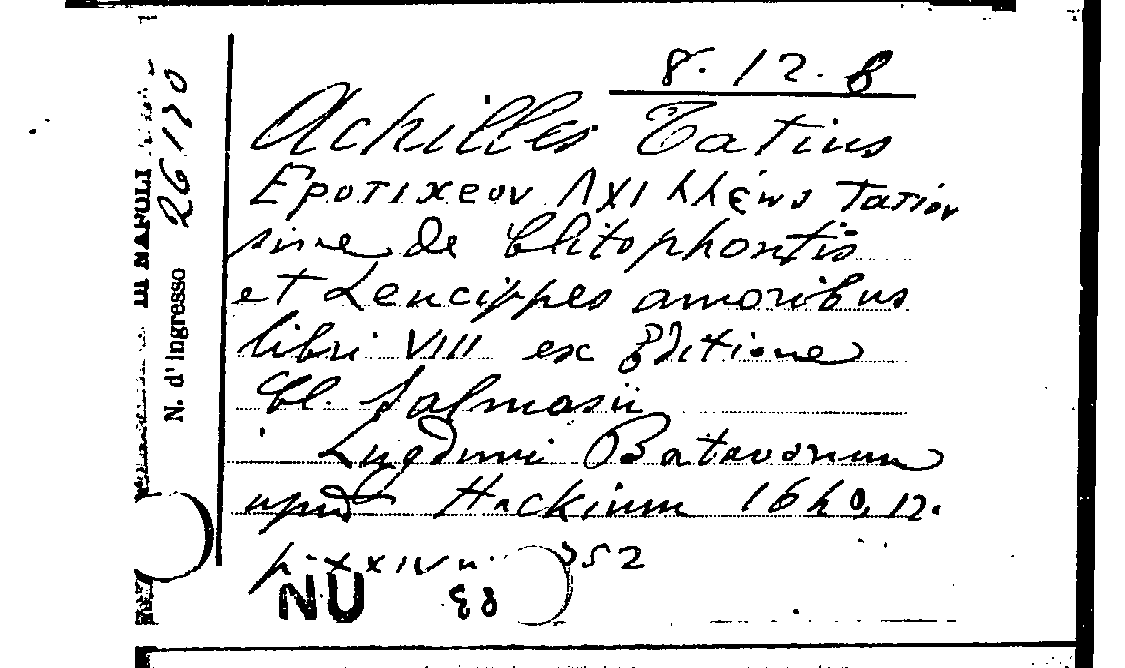 8. 12. 8
Achilles Tatius
Εροτιχεον Λχιλλέως Τατίον
sive de Clitophontis
et Leucippes amoribus
libri VIII ex Editione
Cl. Salmasii
Lugduni Batavorum
apud Hackium 1640, 12.
p. XXIV n. 752
NU
DI NAPOLI
N. d'Ingresso 26130